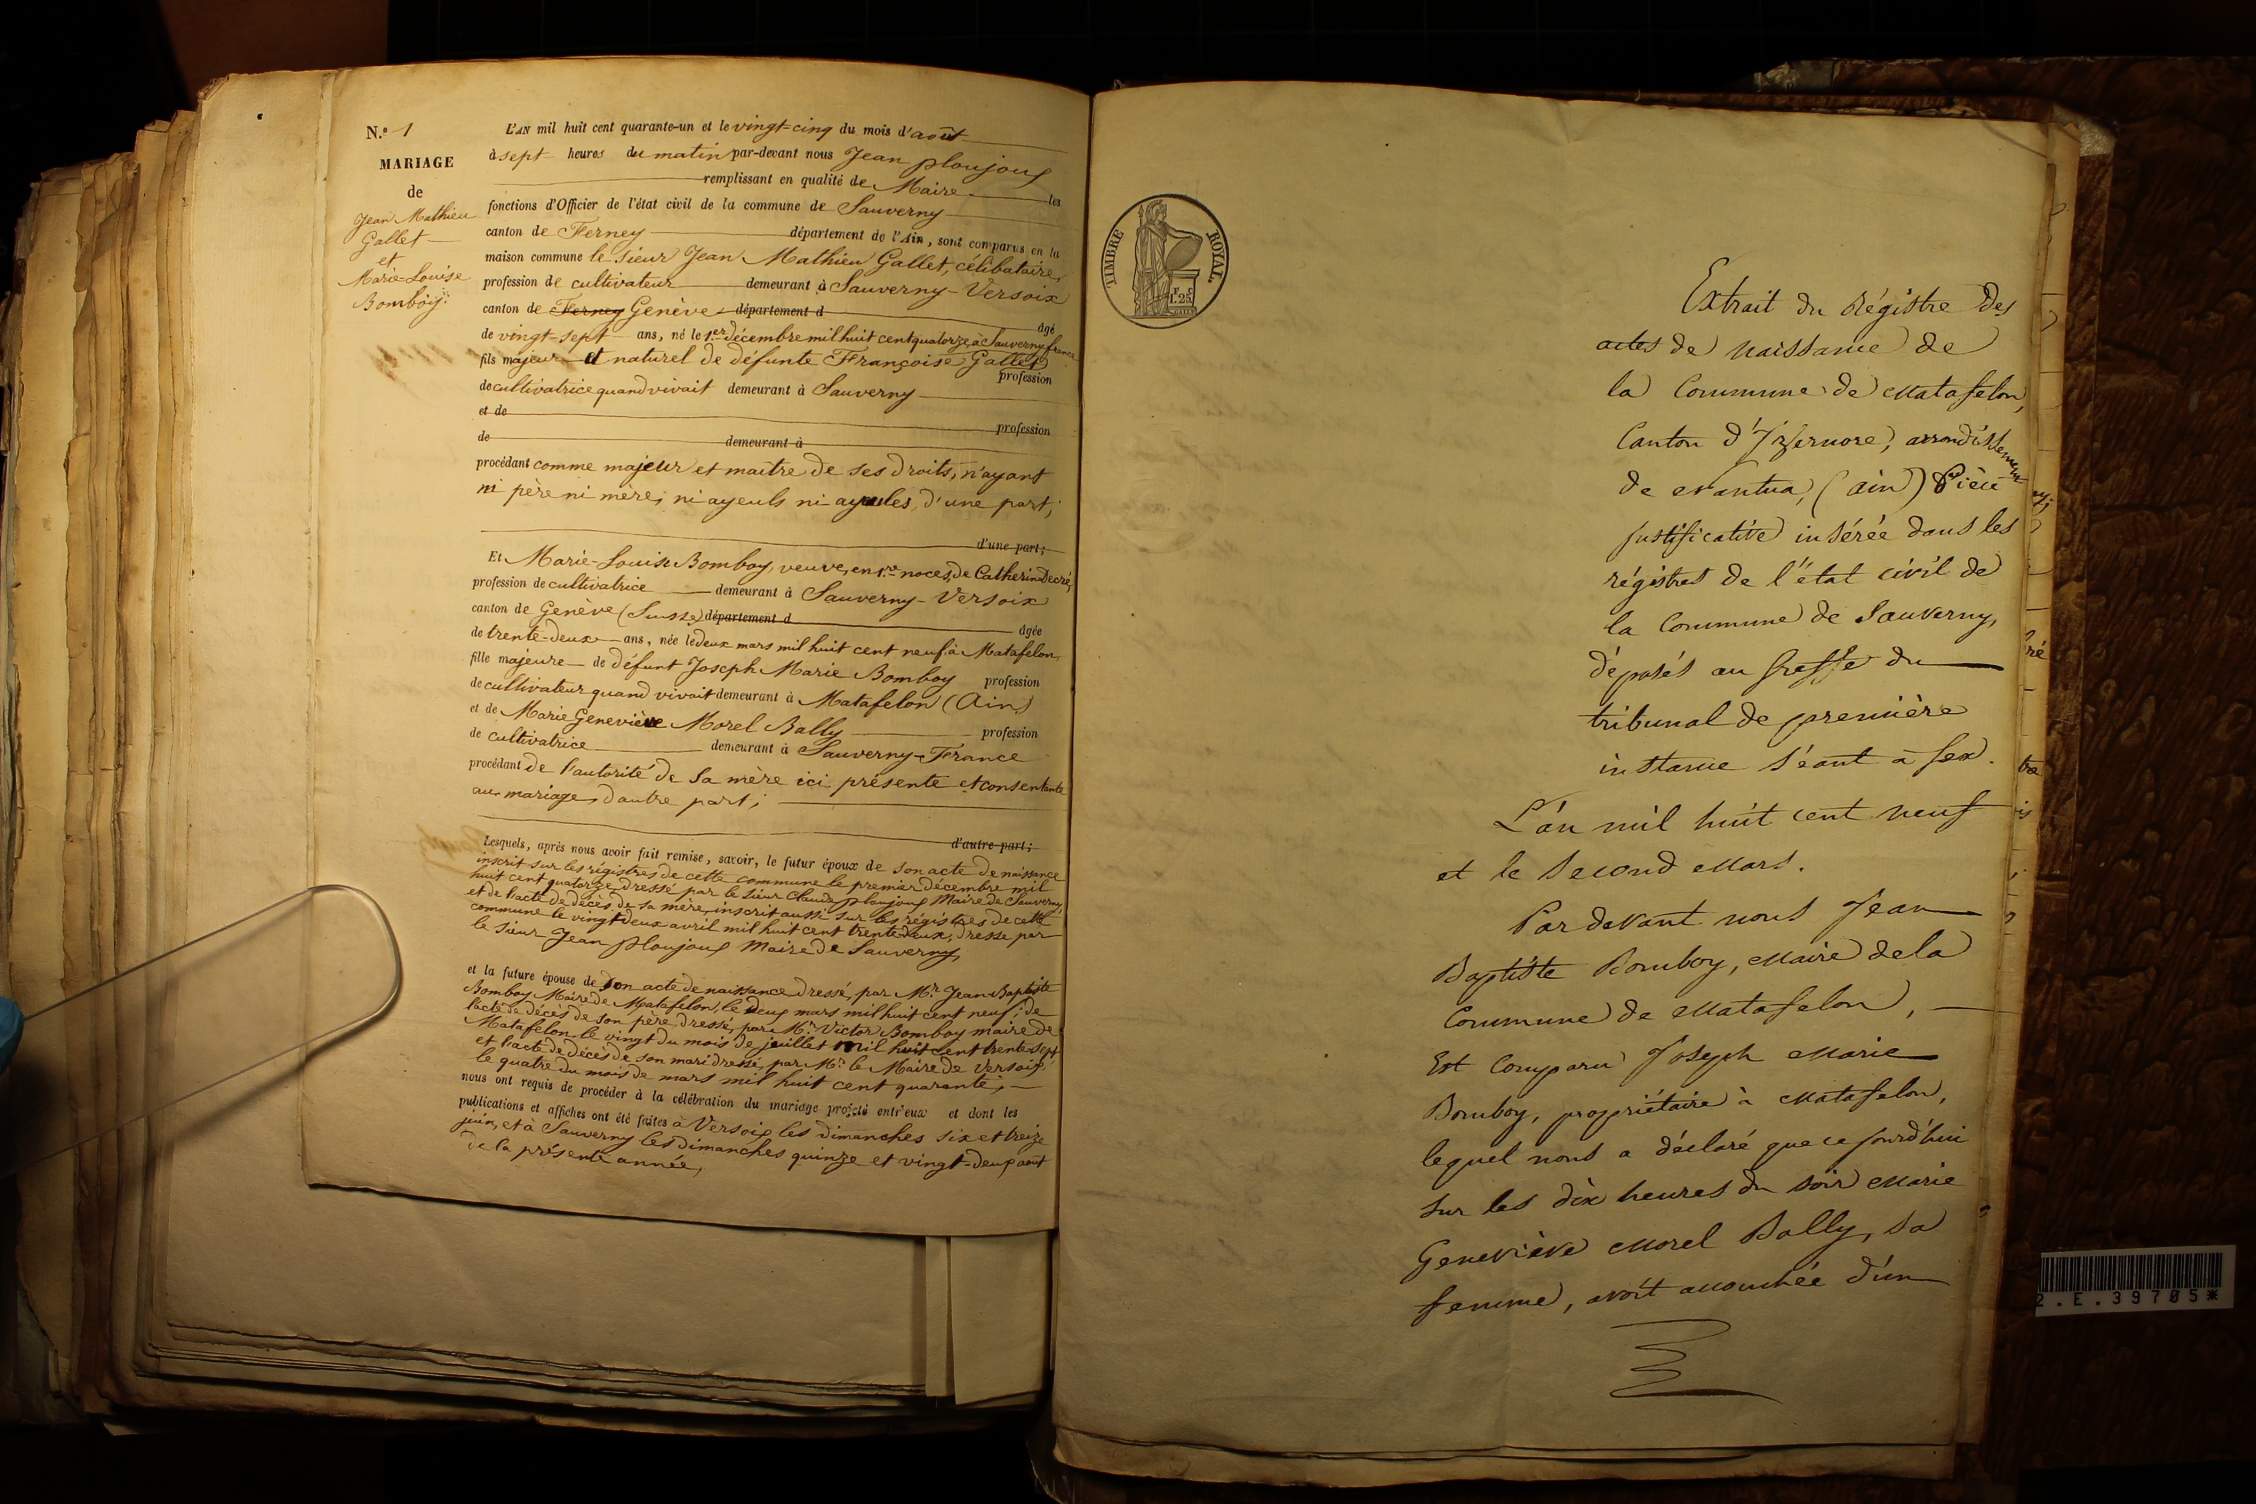 N.º 1
MARIAGE
de
Jean Mathieu
Gallet
et
Marie-Louise
Bomboy
L'AN mil huit cent quarante-un et le vingt-cinq du mois d'août
à sept heures du matin par-devant nous Jean Ploujoux
remplissant en qualité de Maire les
fonctions d'Officier de l'état civil de la commune de Sauverny
canton de Ferney département de l'Ain, sont comparus en la
maison commune le sieur Jean Mathieu Gallet, célibataire,
profession de cultivateur demeurant à Sauverny-Versoix
canton de Ferney Genève département d âgé
de vingt-sept ans, né le 1er décembre mil huit cent quatorze, à Sauverny france
fils majeur et naturel de défunte Françoise Gallet
profession
de cultivatrice quand vivait demeurant à Sauverny
et de profession
de demeurant à
procédant comme majeur et maitre de ses droits, n'ayant
ni père ni mère, ni ayeuls ni ayeules, d'une part;
d'une part;
Et Marie-Louise Bomboy, veuve, en 1re noces, de Catherin Decré,
profession de cultivatrice demeurant à Sauverny-Versoix
canton de Genève (Suisse) département d âgée
de trente-deux ans, née le deux mars mil huit cent neuf, à Matafelon,
fille majeure de défunt Joseph Marie Bomboy profession
de cultivateur quand vivait demeurant à Matafelon (Ain)
et de Marie Geneviève Morel Bally profession
de cultivatrice demeurant à Sauverny-France
procédant de l'autorité de sa mère ici présente et consentante
au mariage, d'autre part;
d'autre part;
Lesquels, après nous avoir fait remise, savoir, le futur époux de son acte de naissance
inscrit sur les régistres de cette commune le premier décembre mil
huit cent quatorze, dressé par le sieur Claude Ploujoux Maire de Sauverny,
et de l'acte de décès de sa mère, inscrit aussi sur les régistres de cette
commune le vingt-deux avril mil huit cent trente-deux, dressé par
le sieur Jean Ploujoux Maire de Sauverny,
et la future épouse de son acte de naissance dressé, par Mr Jean Baptiste
Bomboy Maire de Matafelon, le deux mars mil huit cent neuf; de
l'acte de décès de son père, dressé, par Mr Victor Bomboy maire de
Matafelon le vingt du mois de juillet mil huit cent trente-sept
et l'acte de décès de son mari dressé, par Mr le Maire de Versoix,
le quatre du mois de mars mil huit cent quarante;
nous ont requis de procéder à la célébration du mariage projeté entr'eux et dont les
publications et affiches ont été faites à Versoix les dimanches six et treize
juin, et à Sauverny les dimanches quinze et vingt-deux août
de la présente année,
TIMBRE ROYAL
1.25
Extrait du Régistre des
actes de naissance de
la Commune de Matafelon,
Canton d'Izernore, arrondissement
de Nantua, (Ain) Pièce
justificative insérée dans les
régistres de l'état civil de
la Commune de Sauverny,
déposés au greffe du
tribunal de première
instance séant à Gex.
L'an mil huit cent neuf
et le second mars.
Par devant nous Jean
Baptiste Bomboy, Maire de la
Commune de Matafelon,
Est Comparu Joseph Marie
Bomboy, propriétaire à Matafelon,
lequel nous a déclaré que ce jourd'hui
sur les dix heures du soir Marie
Geneviève Morel Bally, sa
femme, avoit accouchée d'un
2.E.39705*